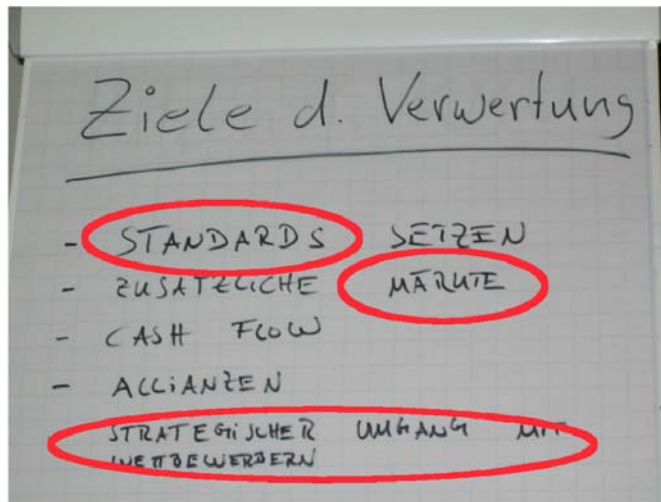 Ziele d. Verwertung
- STANDARDS SETZEN
- ZUSÄTZLICHE MÄRKTE
- CASH FLOW
- ALLIANZEN
STRATEGISCHER UMGANG MIT
WETTBEWERBERN